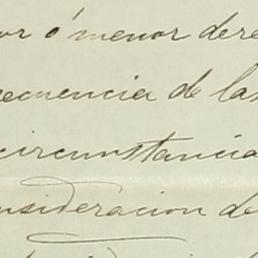 or ó menor dere
recuencia de las
circunstancia
nsideracion de